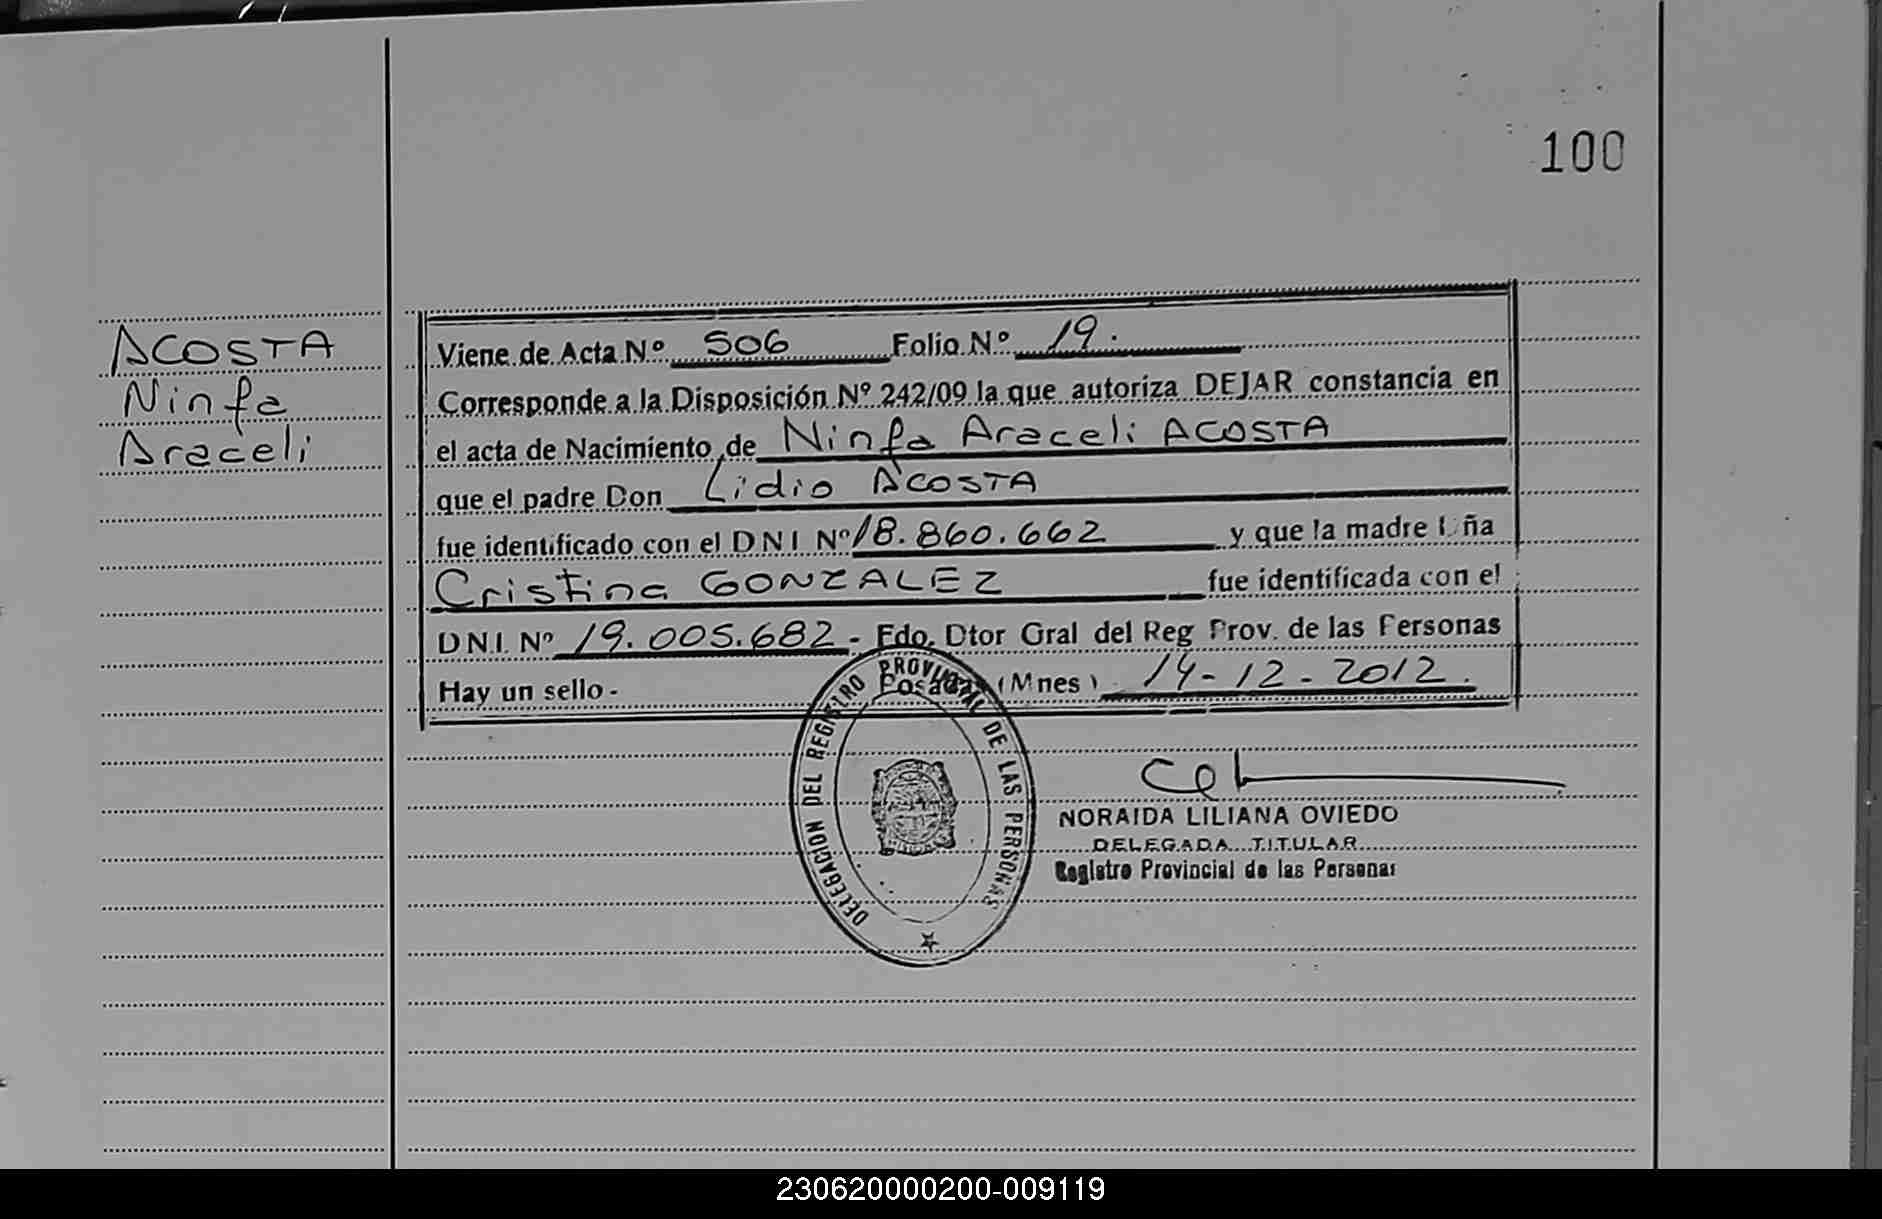 100
ACOSTA
Ninfa
Araceli
Viene de Acta Nº 506 Folio Nº 19.
Corresponde a la Disposición Nº 242/09 la que autoriza DEJAR constancia en
el acta de Nacimiento de Ninfa Araceli ACOSTA
que el padre Don Lidio ACOSTA
fue identificado con el DNI Nº 18.860.662 y que la madre Dña
Cristina GONZALEZ fue identificada con el
DNI. Nº 19.005.682 - Fdo. Dtor Gral del Reg Prov. de las Personas
Hay un sello - Posadas (Mnes) 14-12-2012.
DELEGACION DEL REGISTRO PROVINCIAL DE LAS PERSONAS
NORAIDA LILIANA OVIEDO
DELEGADA TITULAR
Registro Provincial de las Personas
230620000200-009119